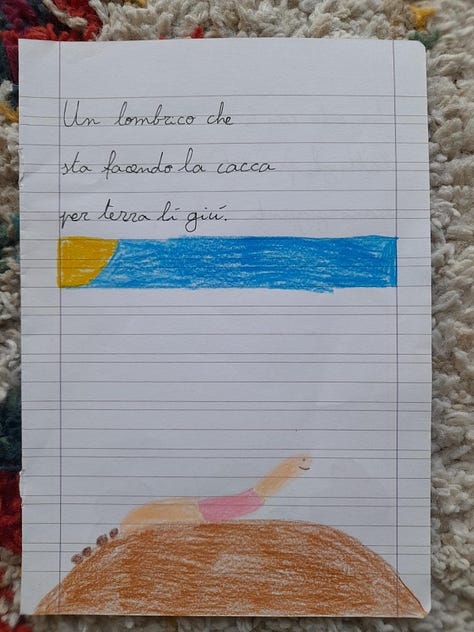 Un lombrico che
sta facendo la cacca
per terra lì giù.